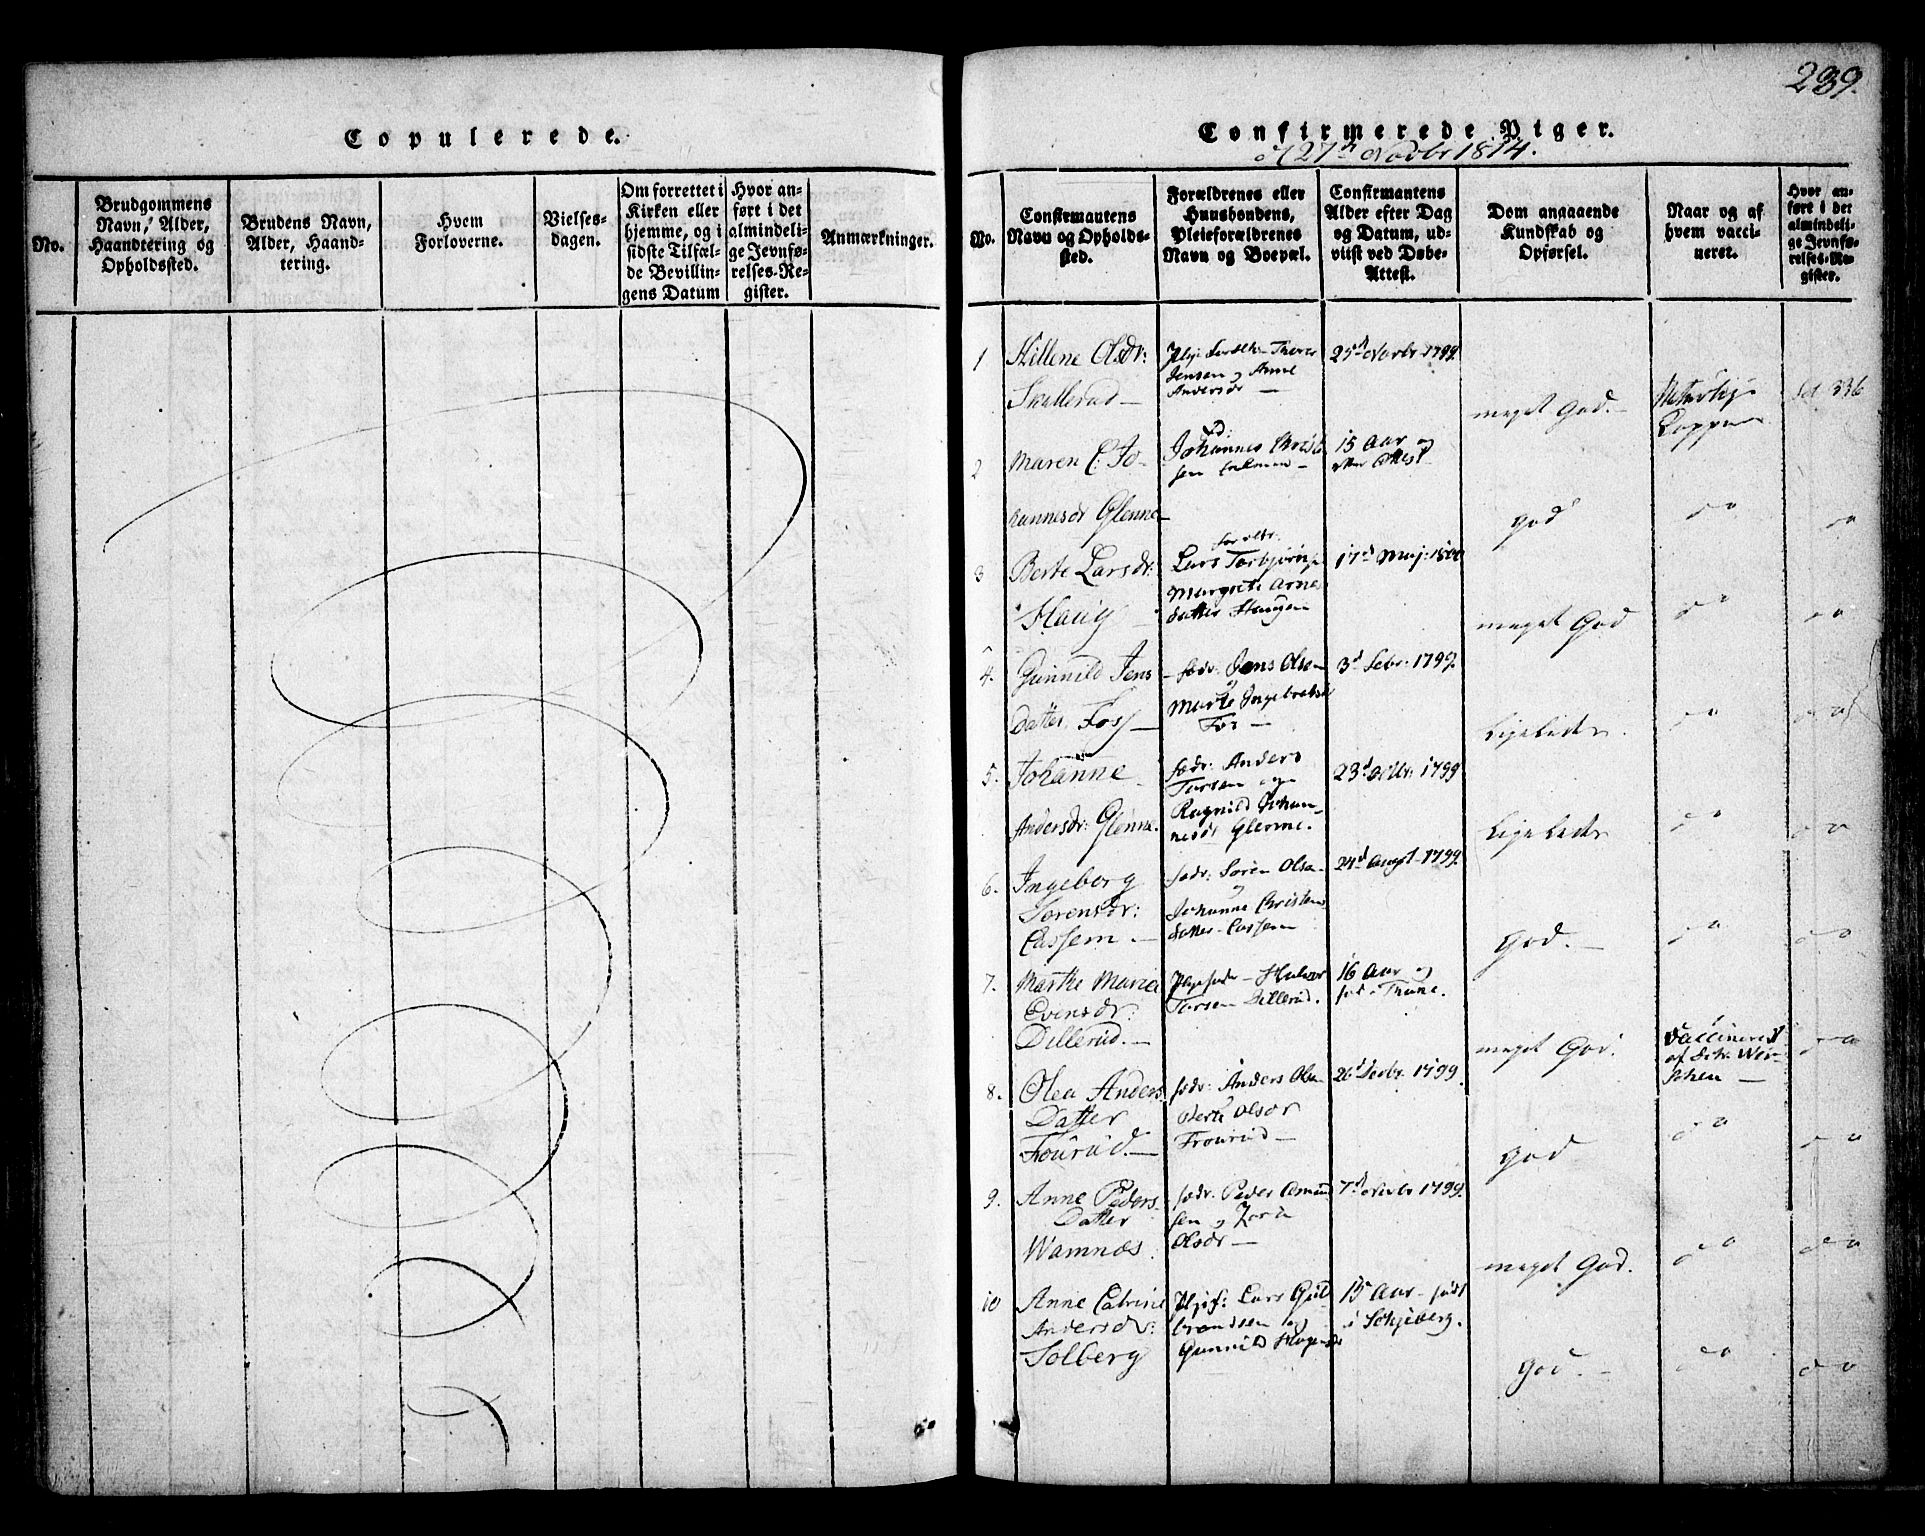 239.
Copulerede.
No.
Brudgommens Navn, Alder, Haandtering og Opholdssted.
Brudens Navn, Alder, Haandtering.
Hvem Forloverne.
Vielsesdagen.
Om forrettet i Kirken eller hjemme, og i sidste Tilfælde Bevillingens Datum
Hvor anført i det almindelige Jevnførelses-Register.
Anmærkninger.
Confirmerede Piger.
d 27de Novbr 1814.
No.
Confirmantens Navn og Opholdssted.
Forældrenes eller Huusbondens, Pleieforældrenes Navn og Boepæl.
Confirmantens Alder efter Dag og Datum, udviist ved Døbe-Attest.
Dom angaaende Kundskab og Opførsel.
Naar og af hvem vaccineret.
Hvor anført i det almindelige Jevnførelses-Register.
1 Hillene Olsdr:
Skullerud
Jensen og Anne
Andersdr
25d Novbr 1799.
meget God.
336
2 Maren C. Jo-
hannesdr Glenne
Johannes Christ
sen
15 Aar og
God
do
do
3 Berte Larsdr:
Haug
Lars Torbjørns
Margrete Arne
datter Haugen
17d Maj: 1800
meget God
do
do
4. Gunnild Jens
Datter Foss
fædr: Jens Olsen
og
Marte Ingebretsdr
Fos
3d Febr: 1799.
Ligeledes.
do
do
5. Johanne
Andersdr: Glenne.
fædr: Anders
Torsen og
Ragnild Johan-
nesdr Glenne.
23d Octbr: 1799
Ligeledes
do
do
6. Ingeborg
Sørensdr:
Cassem.
fædr: Søren Olsen
og
Johanne Christens
datter Cassem
24d August 1799.
God.
do
do
7. Marthe Maria
Evensdr:
Dillerud.
Halvor
Torsen Dillerud.
16 Aar og
meget God.
Vaccineret
do
8. Olea Anders
Datter
Fourud.
fædr: Anders Olsen
Berte Olsdr
Frourud
26d 1799.
God
do
do
9. Anne Peders
Datter
Wamnæs.
fædr: Peder Amund
sen og
Olsdr
7d Novbr 1799.
meget God.
do
do
10 Anne Catrine
Andersdr:
Solberg
Lars Gul-
brandsen og
Gunnild
15 Aar født
i Schjeberg.
God.
do
do